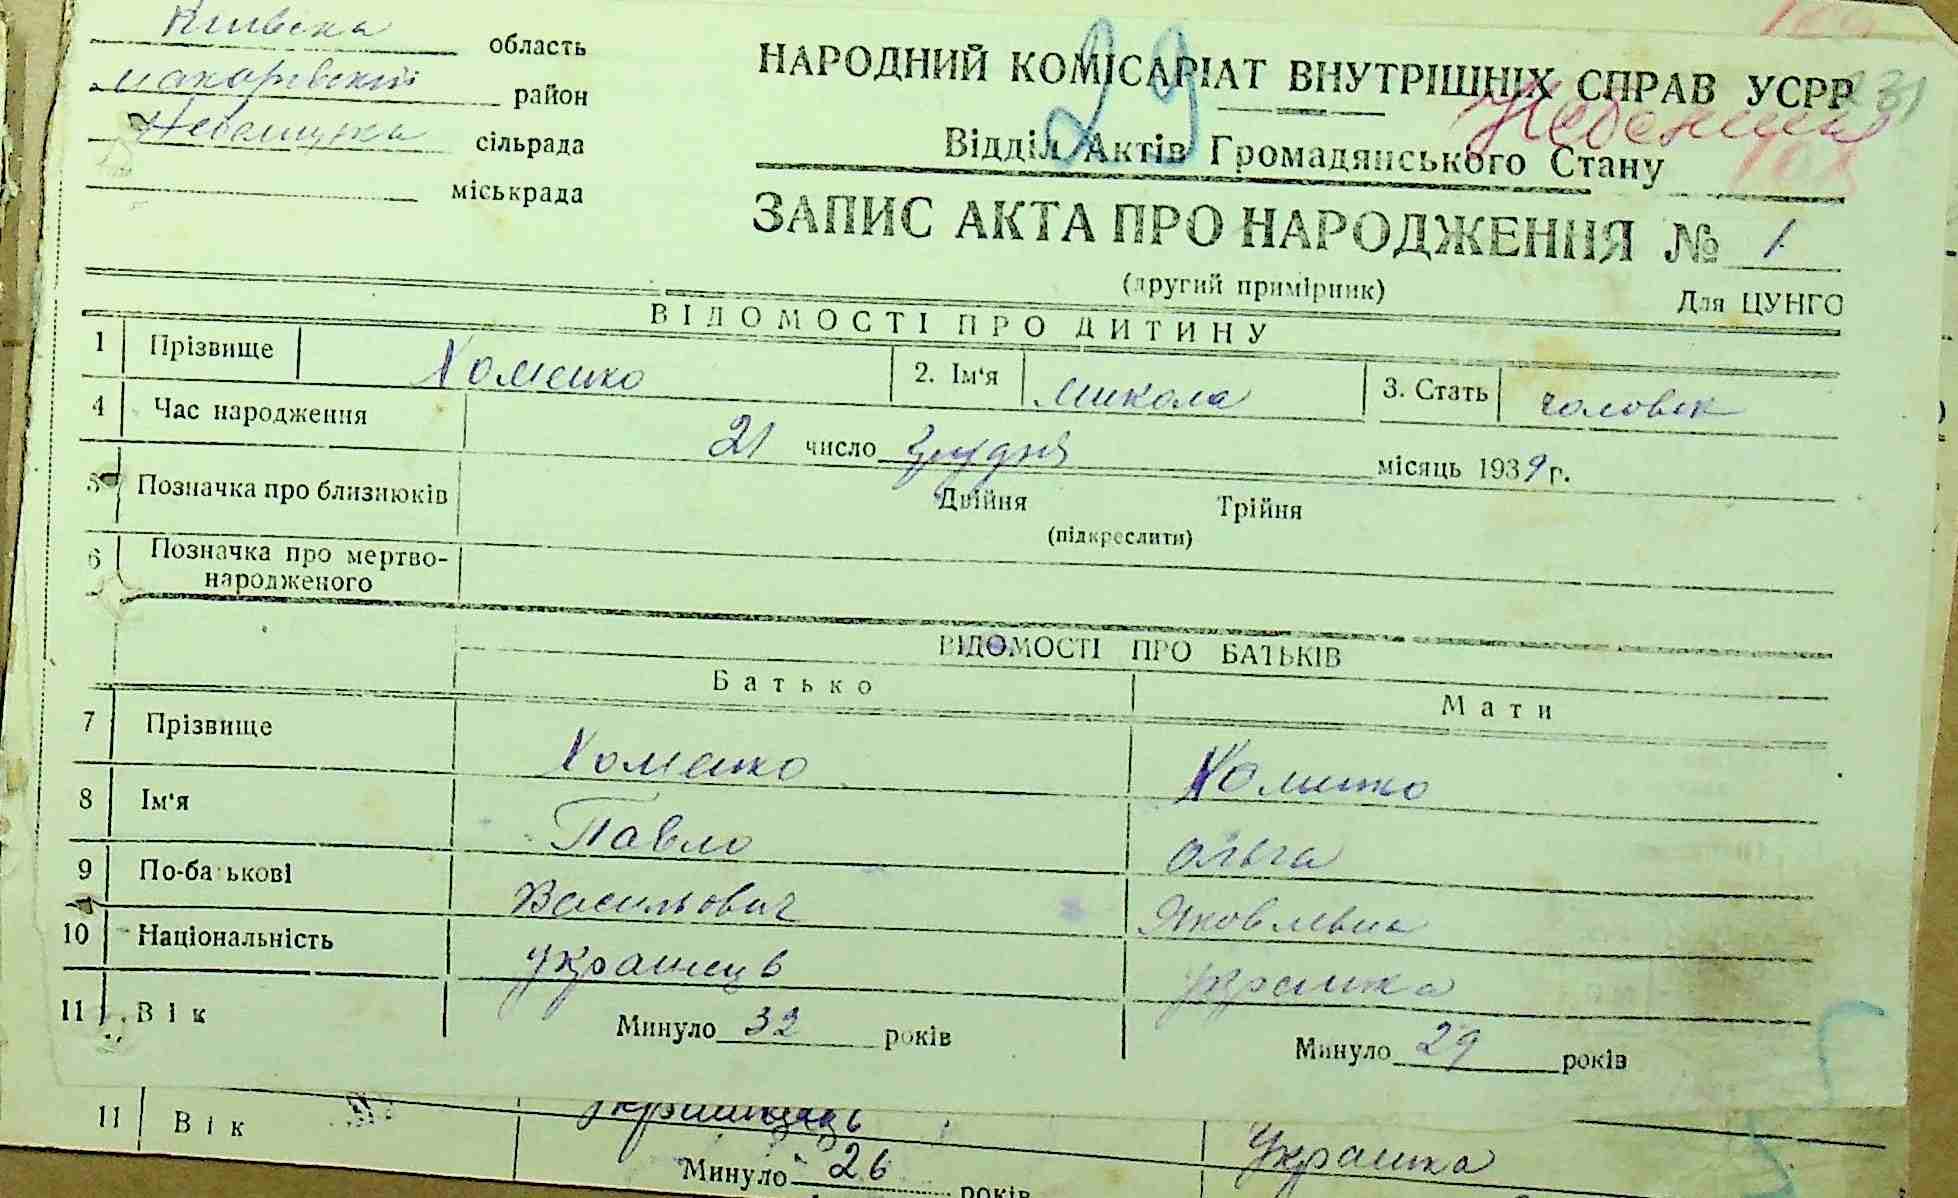 Київська область
Макарівський район
сільрада
міськрада
29
НАРОДНИЙ КОМІСАРІАТ ВНУТРІШНІХ СПРАВ УСРР
Відділ Актів Громадянського Стану
ЗАПИС АКТА ПРО НАРОДЖЕННЯ № 1
(другий примірник) Для ЦУНГО
ВІДОМОСТІ ПРО ДИТИНУ
1 Прізвище Хоменко 2. Ім'я Микола 3. Стать чоловік
4 Час народження 21 число грудня місяць 1939 г.
5 Позначка про близнюків Двійня Трійня
(підкреслити)
6 Позначка про мертво-
народженого
ВІДОМОСТІ ПРО БАТЬКІВ
Батько Мати
7 Прізвище Хоменко Хоменко
8 Ім'я Павло Ольга
9 По-батькові Васильович Яковлевна
10 Національність українець українка
11 Вік Минуло 32 років Минуло 29 років
Українка
11 Вік
Минуло 26 років